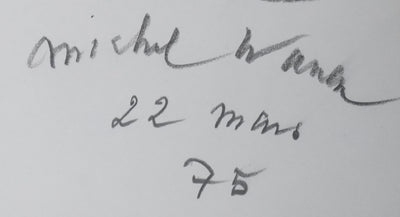 michel
22 mars
75